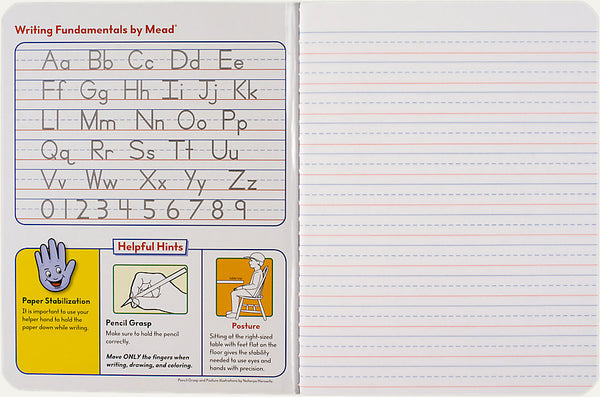 Writing Fundamentals by Mead®
Aa Bb Cc Dd Ee
Ff Gg Hh Ii Jj Kk
Ll Mm Nn Oo Pp
Qq Rr Ss Tt Uu
Vv Ww Xx Yy Zz
0 1 2 3 4 5 6 7 8 9
Helpful Hints
Paper Stabilization
It is important to use your
helper hand to hold the
paper down while writing.
Pencil Grasp
Make sure to hold the pencil
correctly.
Move ONLY the fingers when
writing, drawing, and coloring.
table top
Posture
Sitting at the right-sized
table with feet flat on the
floor gives the stability
needed to use eyes and
hands with precision.
Pencil Grasp and Posture illustrations by